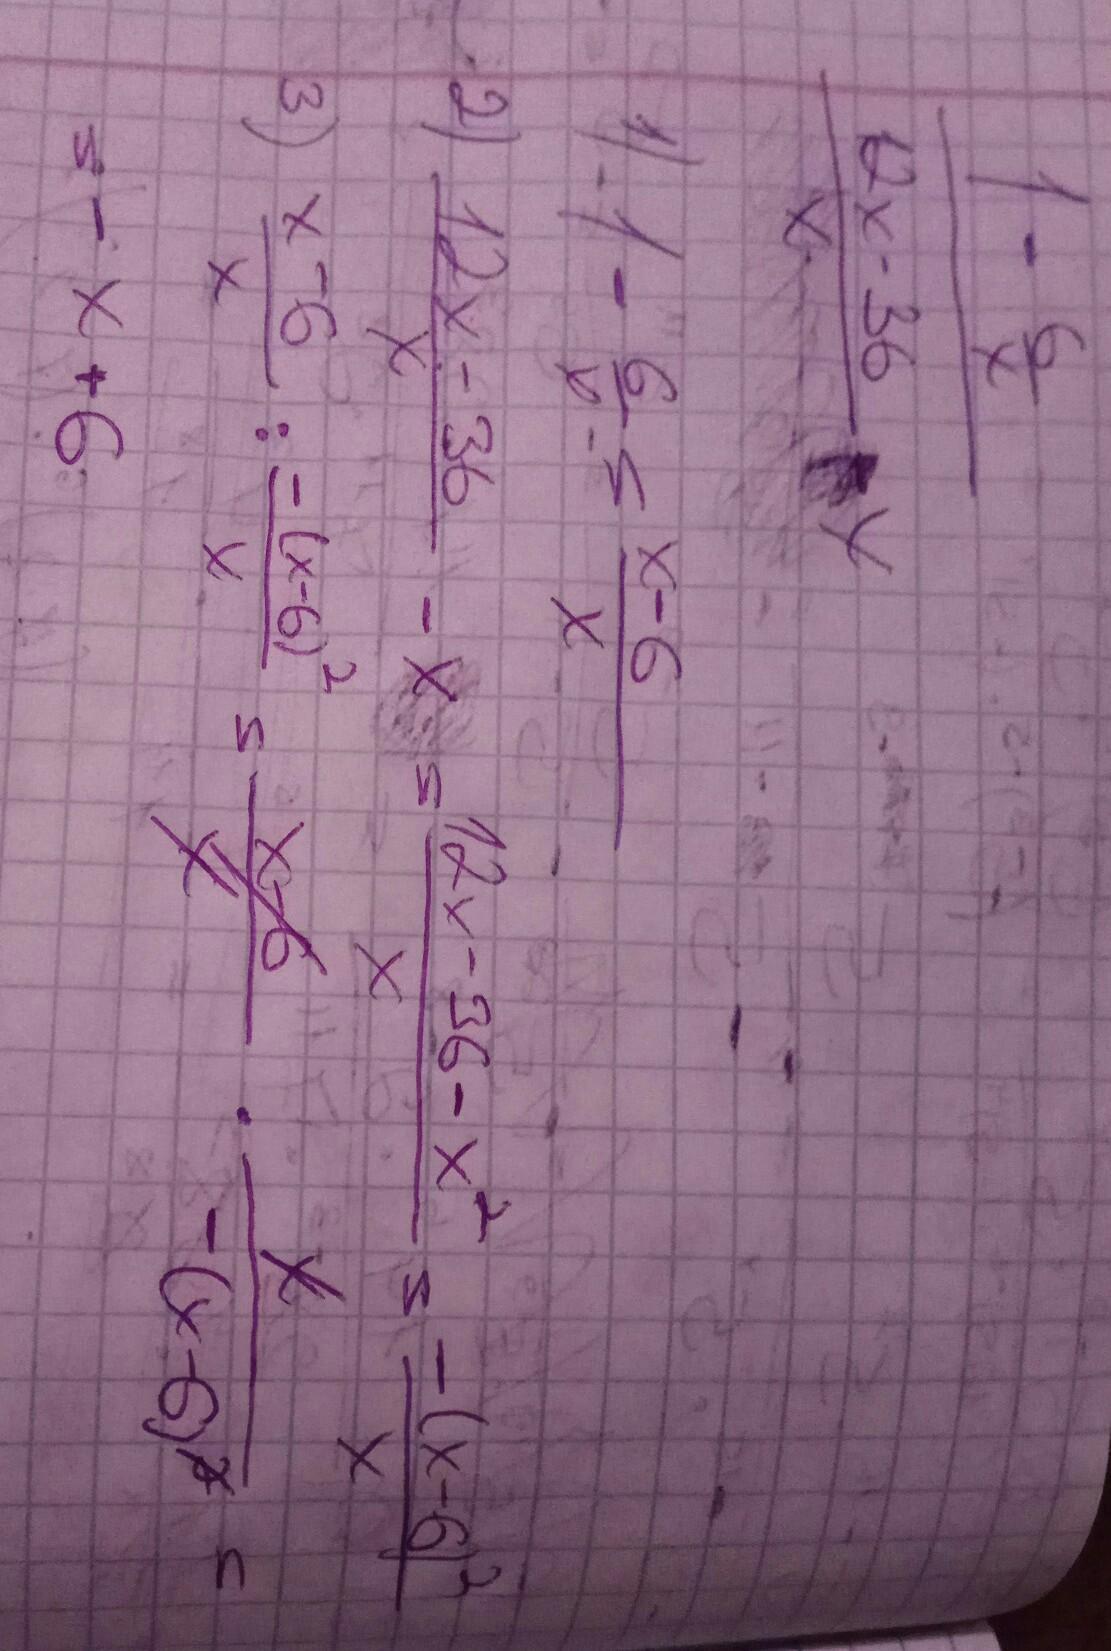 1 - 6/x
(12x - 36)/x - x
1) 1 - 6/x = (x-6)/x
2) (12x - 36)/x - x = (12x - 36 - x²)/x = -(x-6)²/x
3) (x-6)/x : -(x-6)²/x = (x-6)/x · x/-(x-6)² =
= - x + 6